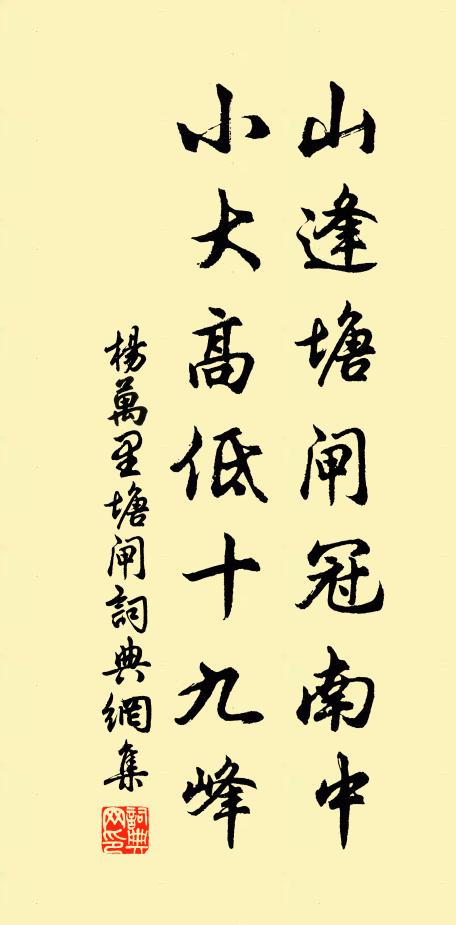 山逢塘闸冠南中
小大高低十九峰
楊萬里塘闸詞典網集
詞典网印